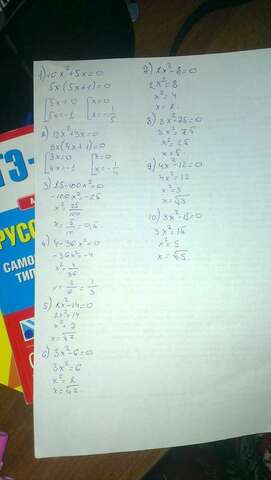 1) 10x²+5x=0
5x(5x+1)=0
[5x=0 [x=0
[5x=-1 [x=-1/5
2) 12x²+3x=0
3x(4x+1)=0
[3x=0 [x=0
[4x=-1 [x=-1/4
3) 25-100x²=0
-100x²=-25
x²=25/100
x=5/10=0,5
4) 4-36x²=0
-36x²=-4
x²=4/36
x=2/6=1/3
5) 2x²-14=0
2x²=14
x²=7
x=√7
6) 3x²-6=0
3x²=6
x²=2
x=√2
7) 2x²-8=0
2x²=8
x²=4
x=2
8) 3x²-75=0
3x²=75
x²=25
x=5
9) 4x²-12=0
4x²=12
x²=3
x=√3
10) 3x²-15=0
3x²=15
x²=5
x=√5
ТЭ-
РУСС
САМО
ТИП